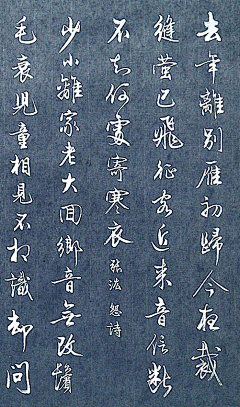 去年離別雁初歸今夜裁
縫螢已飛征客近來音信斷
不知何處寄寒衣 張浤 怨詩
少小離家老大回鄉音無改鬢
毛衰兒童相見不相識却問